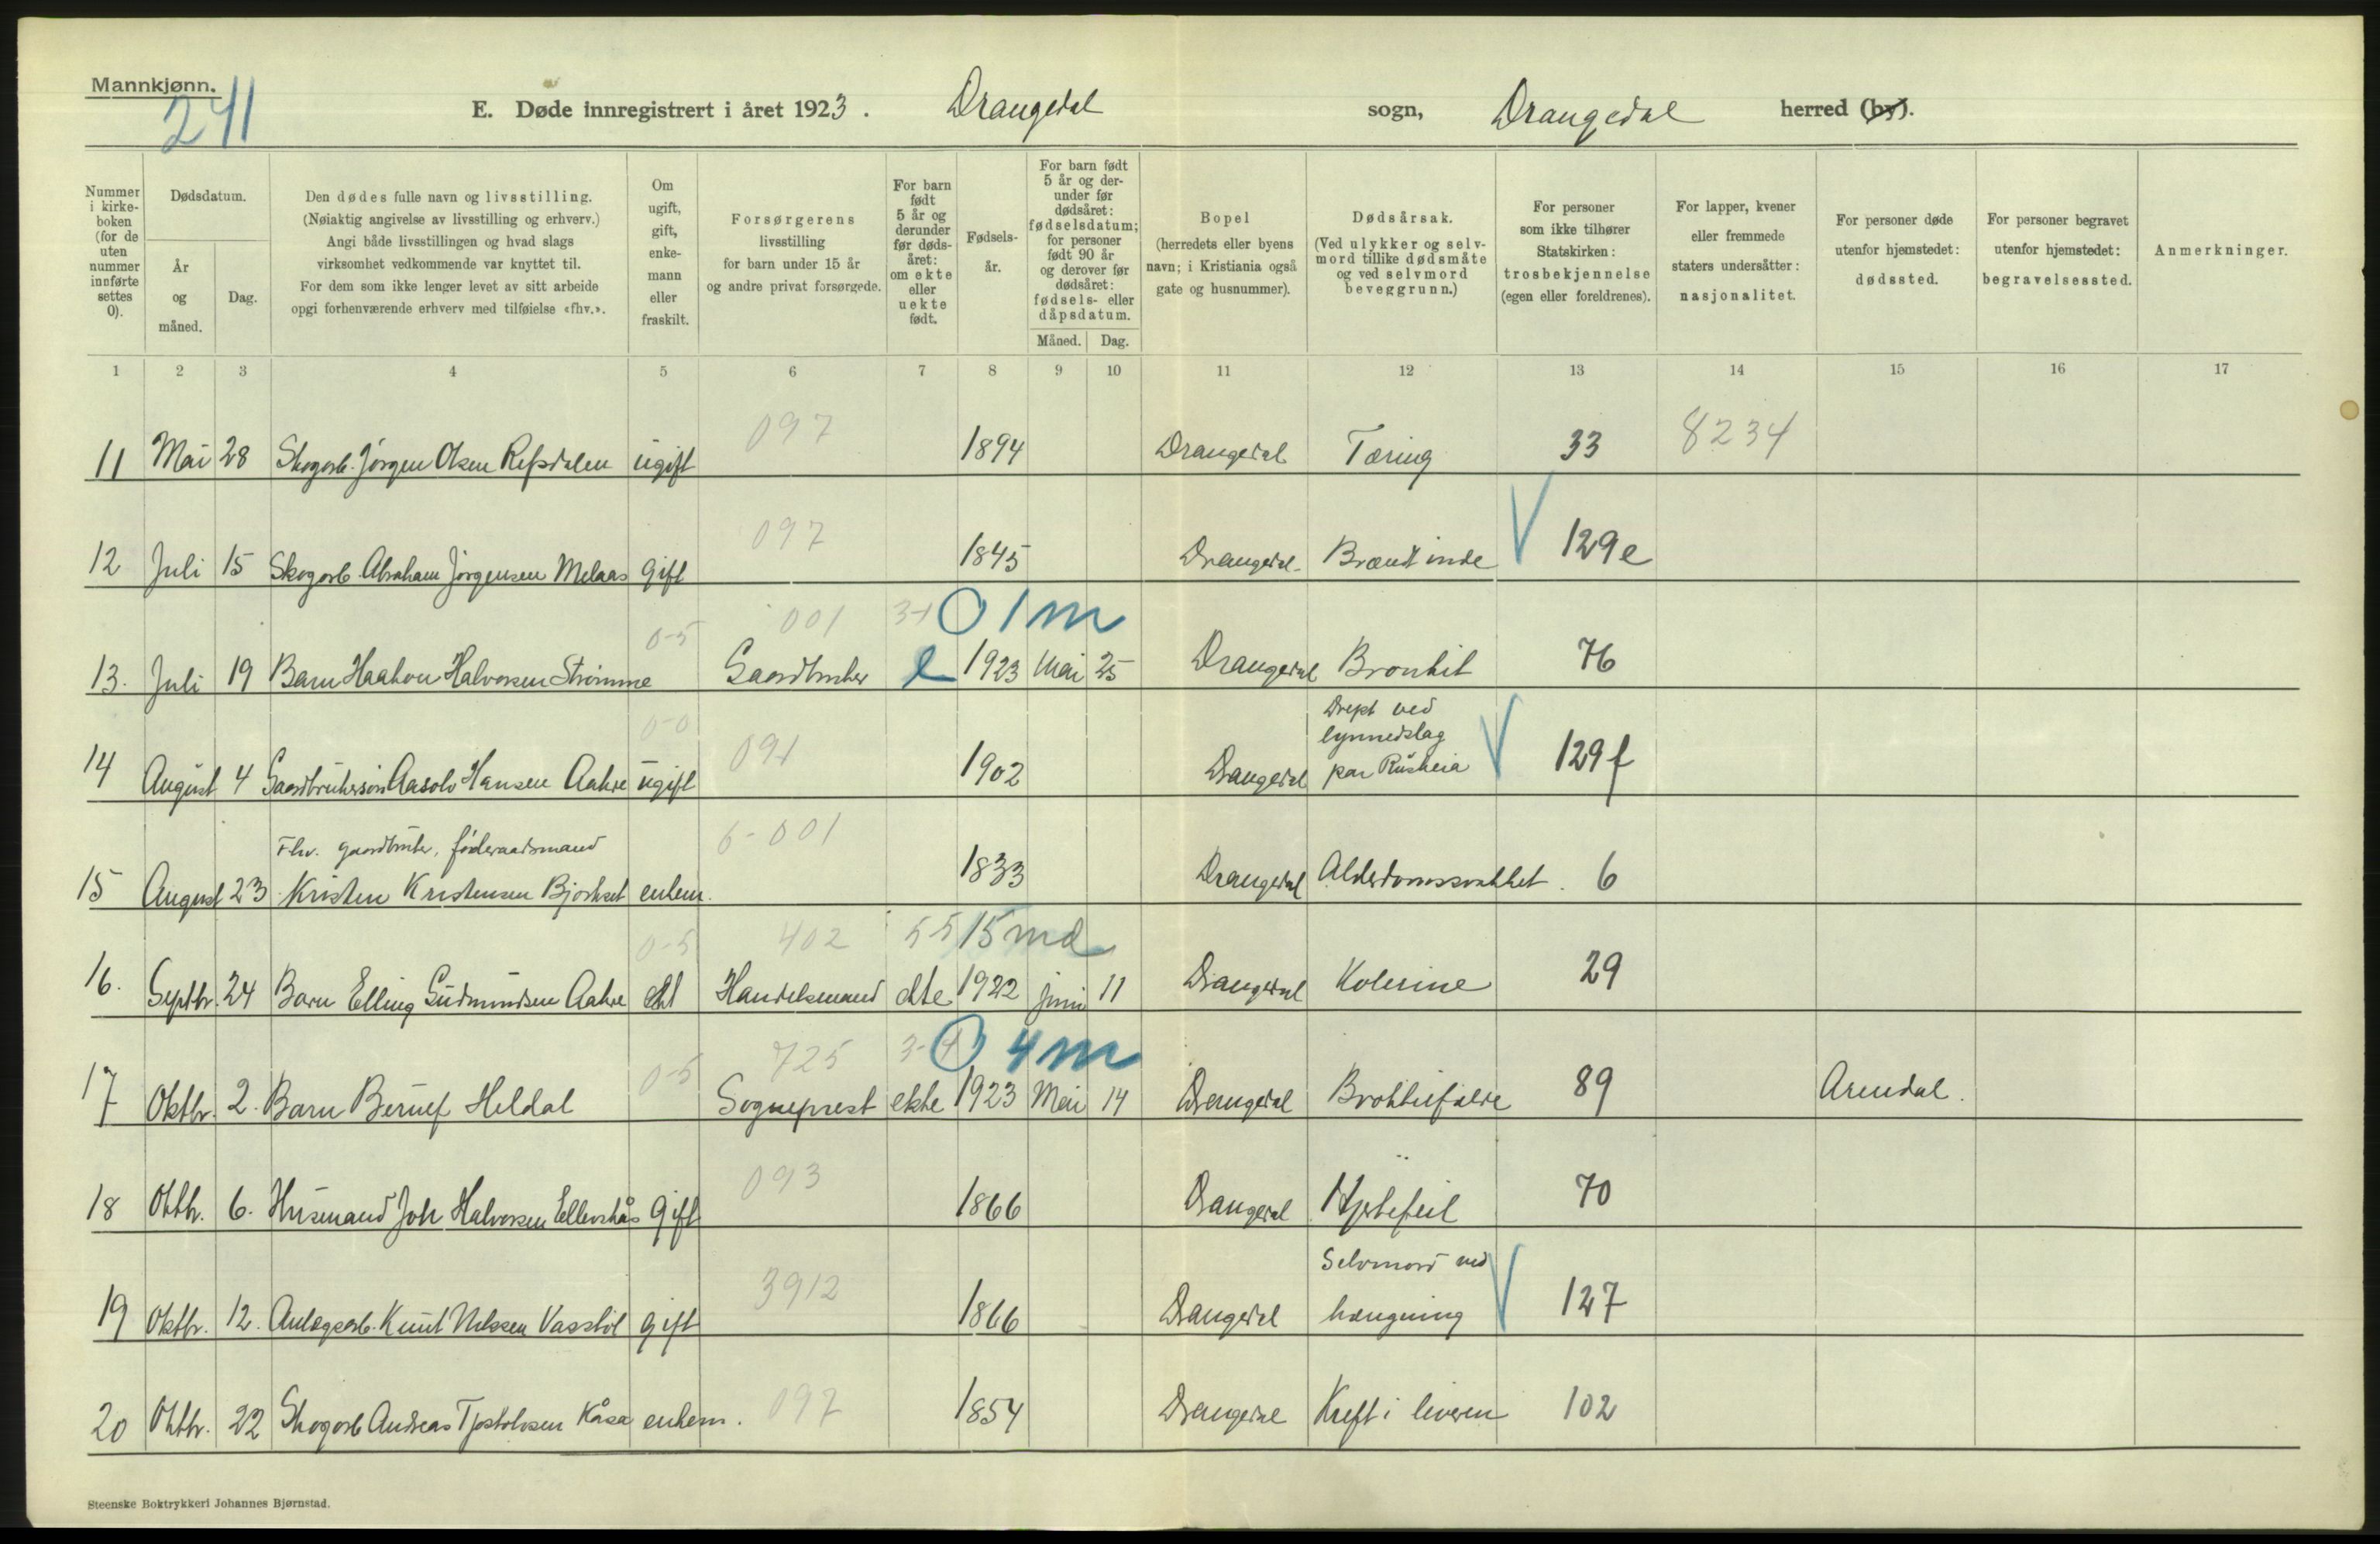 Mannkjønn.
241
E. Døde innregistrert i året 1923. Drangedal sogn, Drangedal herred (by).
Nummer i kirke-boken (for de uten nummer innførte settes 0).
Dødsdatum.
År og måned.
Dag.
Den dødes fulle navn og livsstilling.
(Nøiaktig angivelse av livsstilling og erhverv.)
Angi både livsstillingen og hvad slags
virksomhet vedkommende var knyttet til.
For dem som ikke lenger levet av sitt arbeide
opgi forhenværende erhverv med tilføielse «fhv.».
Om ugift, gift, enke-mann eller fraskilt.
Forsørgerens
livsstilling
for barn under 15 år
og andre privat forsørgede.
For barn født 5 år og derunder før døds-året: om ekte eller uekte født.
Fødsels-år.
For barn født 5 år og der-under før dødsåret: fødselsdatum; for personer født 90 år og derover før dødsåret: fødsels- eller dåpsdatum.
Måned. Dag.
Bopel
(herredets eller byens
navn; i Kristiania også
gate og husnummer).
Dødsårsak.
(Ved ulykker og selv-
mord tillike dødsmåte
og ved selvmord
beveggrunn.)
For personer
som ikke tilhører
Statskirken:
trosbekjennelse
(egen eller foreldrenes).
For lapper, kvener
eller fremmede
staters undersåtter:
nasjonalitet.
For personer døde
utenfor hjemstedet:
dødssted.
For personer begravet
utenfor hjemstedet:
begravelsessted.
Anmerkninger.
1 2 3 4 5 6 7 8 9 10 11 12 13 14 15 16 17
097
11 Mai 28 Skogarb. Jørgen Olsen Refsdalen ugift 1894 Drangedal Tæring 33 8234
097
12 Juli 15 Skogarb. Abraham Jørgensen Melaas gift 1845 Drangedal Brændt inde V 129e
0-5 001 3-1 0 1 m
13. Juli 19 Barn Haakon Halvorsen Strømme Gaardbruker e 1923 Mai 25 Drangedal Bronkit 76
0-0 091 Drept ved
lynnedslag
14 August 4 Gaardbrukersøn Aasolv Hansen Aakre ugift 1902 Drangedal paa Rusheia V 129f
Fhv. gaardbruker, føderaadsmand 6-001
15 August 23 Kristen Kristensen Bjorkset enkem. 1833 Drangedal Alderdomssvakhet. 6
0-5 402 55 15 md
16. Septbr. 24 Barn Elling Gudmundsen Aakre ekt Handelsmand ekte 1922 juni 11 Drangedal Kolerine 29
0-5 725 3-4 0 4 m
17 Oktbr. 2. Barn Bernef Heldal Sogneprest ekte 1923 Mai 14 Drangedal 89 Arendal.
093
18 Oktbr. 6. Husmand Joh Halvorsen Ellevskås gift 1866 Drangedal Hjertefeil 70
3912 Selvmord ved
19 Oktbr. 12. Anlægsarb. Knut Nilssen Vasstøl gift 1866 Drangedal hængning V 127
20 Oktbr. 22 Skogarb Andreas Tjostolvsen Kåsa enkem. 097 1854 Drangedal Kreft i leveren 102
Steenske Boktrykkeri Johannes Bjørnstad.